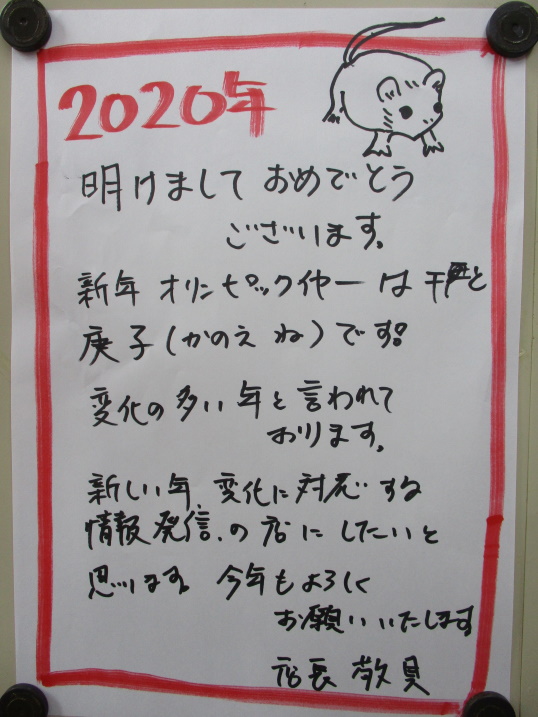 2020年
明けまして おめでとう
ございます。
新年 オリンピックイヤーは 干支
庚子(かのえ ね)です。
変化の多い年と言われて
おります。
新しい年、変化に対応する
情報発信の店にしたいと
思います。今年もよろしく
お願いいたします
店長 敬具